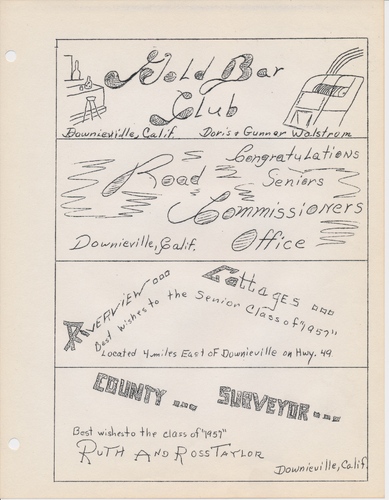 Gold Bar
Club
Downieville, Calif. Doris & Gunnar Walstrom
Congratulations
Seniors
Road
Commissioners
Office
Downieville, Calif.
Riverview... Cottages...
Best wishes to the Senior Class of "1957"
Located 4 miles East of Downieville on Hwy. 49
County... Surveyor...
Best wishes to the class of "1957"
Ruth And Ross Taylor
Downieville, Calif.